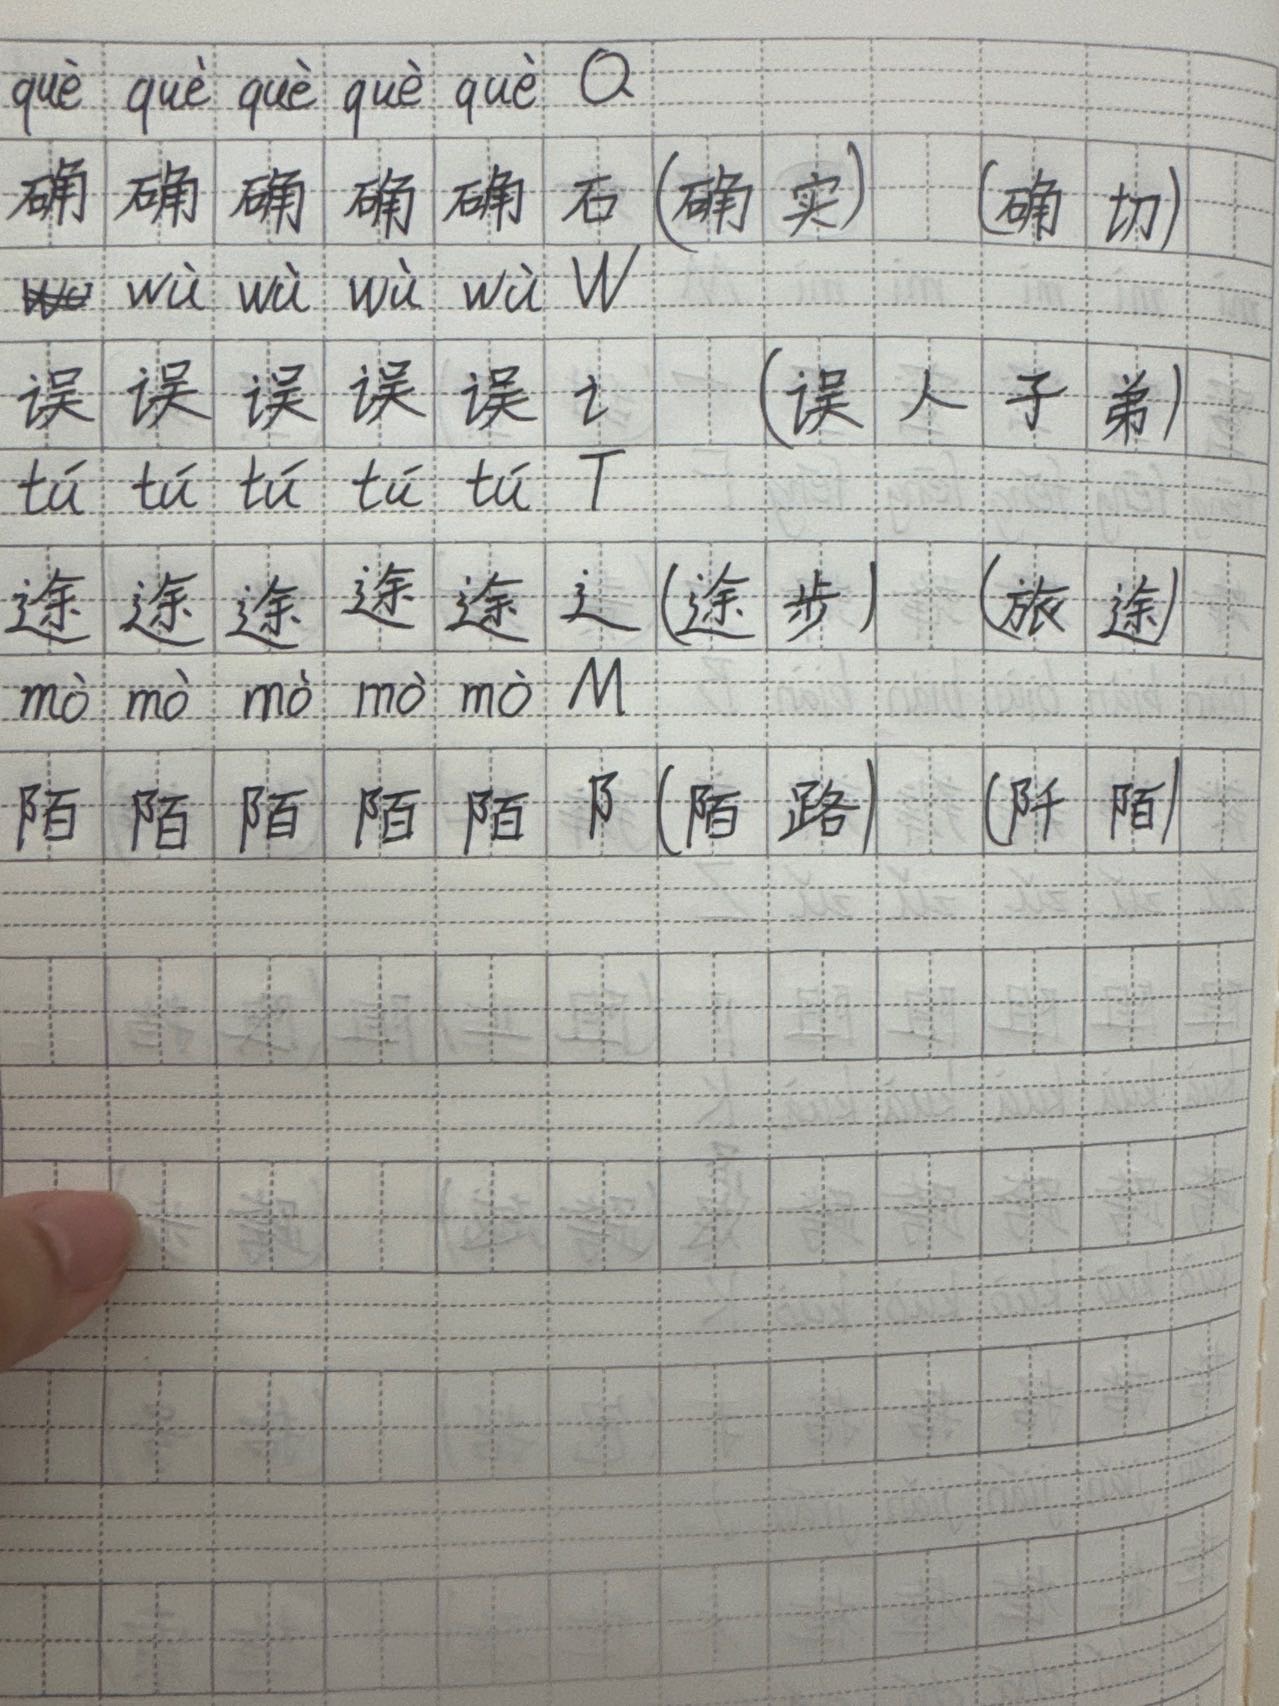 què què què què què Q
确 确 确 确 确 石 (确 实) (确 切)
wù wù wù wù W
误 误 误 误 误 讠 (误 人 子 弟)
tú tú tú tú tú T
途 途 途 途 途 辶 (途 步) (旅 途)
mò mò mò mò mò M
陌 陌 陌 陌 陌 阝 (陌 路) (阡 陌)